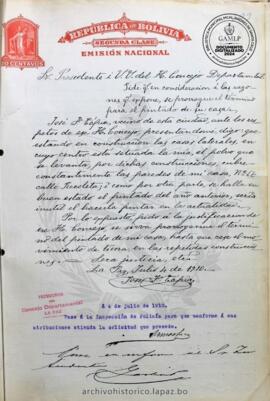 REPÚBLICA DE BOLIVIA
SEGUNDA CLASE
EMISIÓN NACIONAL
GAMLP
DOCUMENTO
DIGITALIZADO
2024
Sr. Presidente i V.V. del H. Concejo Departamental
Pide q' en consideracion á las razo-
nes q' espone, se prorrogue el termino
para el pintado de su casa.
José P. Tapia, vecino de esta ciudad, ante los res-
petos de ese H. Concejo, presentandome, digo: que
estando en construcción las casas laterales, en
cuyo centro esta situada la mia, el polvo que
se levanta, por dichas construcciones, cubre
constantemente las paredes de mi casa,
calle Recoleta; i como por otra parte se halla en
buen estado el pintado del año anterior, seria
inutil el hacerla pintar en la actualidad.
Por lo expuesto, pido á la justificación de
ese H. Concejo, se sirva prorrogarme el termi-
no del pintado de mi casa, hasta que cese el mo-
vimiento de tierra en las repetidas construccio-
nes.
Sera justicia, etc.
La Paz, Julio 4 de 1910.
José P. Tapia
Concejo Departamental
LA PAZ
á 4 de julio de 1910.
Pase á la Inspección de Policía para que conforme á sus
atribuciones atienda la solicitud que precede.
archivohistorico.lapaz.bo